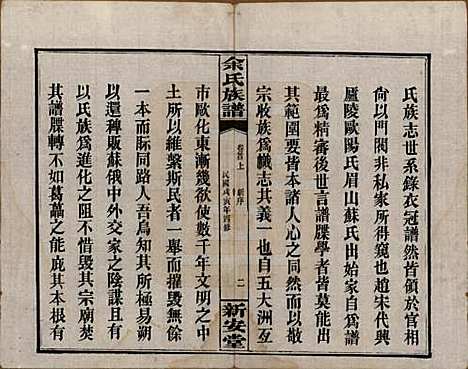 氏族志世系錄衣冠譜然皆領於官相
尙以門閥非私家所得窺也趙宋代興
廬陵歐陽氏眉山蘇氏出始自爲譜
最爲精審後世言譜牒學者皆莫能出
其範圍要皆本諸人心之同然而以敬
宗收族爲幟志其義一也自五大洲互
余氏族譜
卷首上 新序
民國戊寅年四修
二
新安堂
市歐化東漸幾欲使數千年文明之中
土所以維繫斯民者一舉而摧毀無餘
一本而胏同路人吾爲知其所極易朔
以還稗販蘇俄中外交家之陰謀且有
以氏族爲進化之阻不惜毀其宗廟焚
其譜牒轉不如葛藟之能庇其本根有